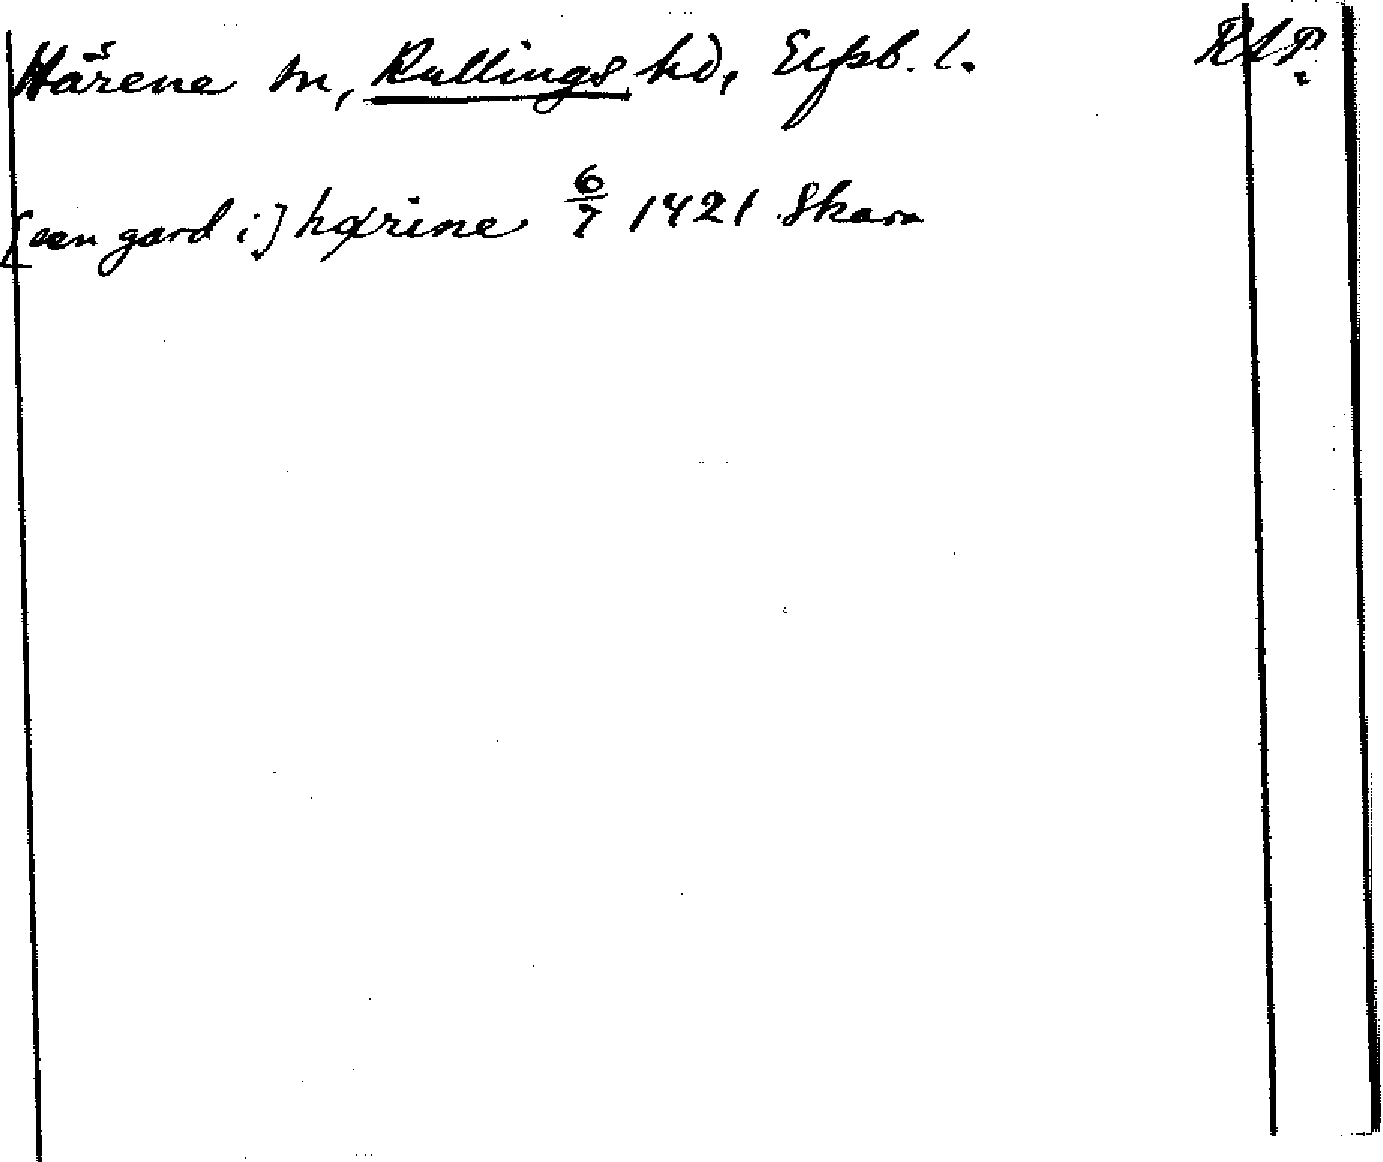 Härene sn, Kullings hd, Elfsb. l. RAP.
[een gard i] hærine 6/7 1421 Skara